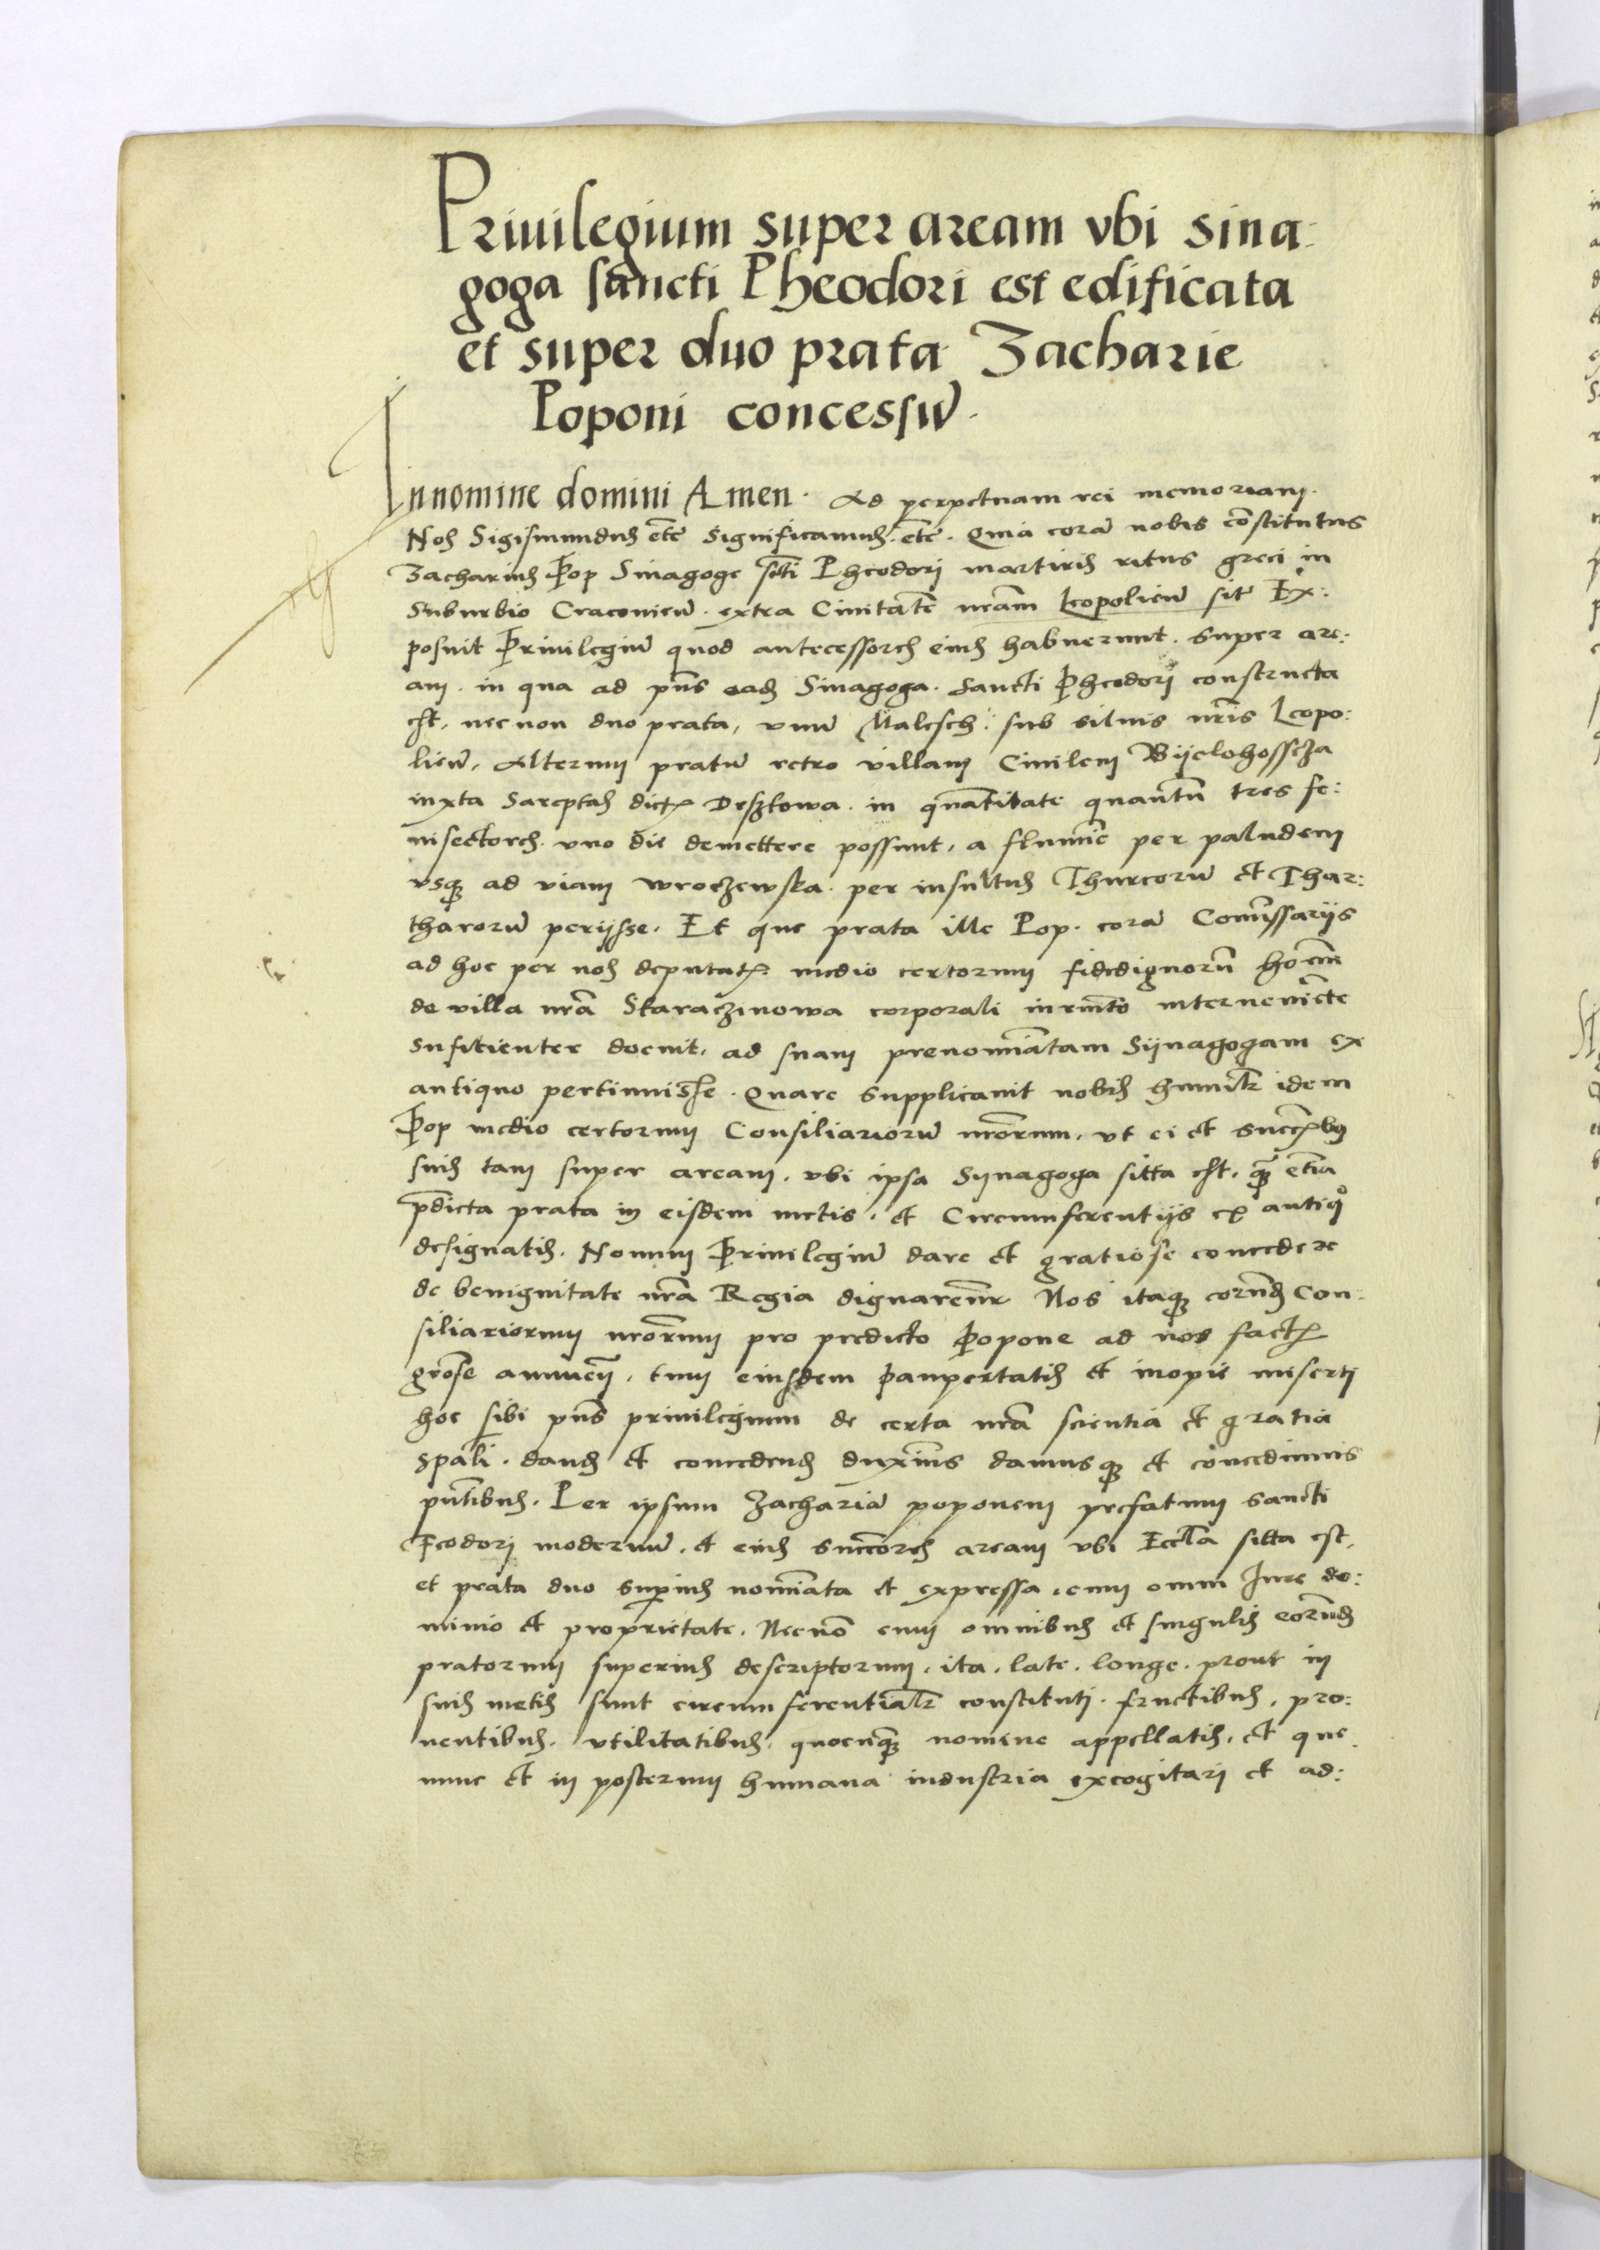 Priuilegium super aream vbi sina:
goga sancti Pheodori est edificata
et super duo prata Zacharie
Poponi concessū.
In nomine domini Amen. Ad perpetuam rei memoriam.
Nos Sigismundus etc̄ significamus. etc̄. Quia corā nobis cōstitutus
Zacharius Pop Sinagoge scti Pheodori martiris ritus greci in
Suburbio Cracouieñ. extra Ciuitatē nrām Leopolieñ sit̄ Ex:
posuit Priuilegiū quod antecessores eius habuerunt. super are:
am. in qua ad pñs eadē Sinagoga. Sancti Pheodori constructa
est, nec non duo prata, vnū Malesch: sub siluis nrīs Leopo:
lieñ, Alterum pratū retro villam Ciuilem Biielohosscza
iuxta Sareptas dict. Deszkowa. in quātitate quantū tres fe:
nisectores. vno die demettere possunt, a flumīe per paludem
vsq ad viam wroczewska. per insultus Thurcorū et Thar:
tharorū periisse. Et que prata ille Pop. corā Comissariis
ad hoc per nos deputat. medio certorum fidedignorū hoīm
de villa nrā Staraczinowa corporali iurmto interueniēte
suficienter docuit, ad suam prenomiātam Siinagogam ex
antiquo pertinuisse. Quare supplicauit nobis humilr idem
Pop medio certorum Consiliariorū nrōrum, vt ei et succbus
suis tam super aream, vbi ipsa Siinagoga sitta est, q̄ etiā
p̄dicta prata in eisdem metis, et Circumferentiis ex antiqo
designatis. Nouum Priuilegiū dare et gratiose concedere
de benignitate nrā Regia dignaremr Nos itaq corund Con:
siliariorum nrōrum pro predicto Popone ad nos fact
grōse annueñ, tum eiusdem paupertatis et inopie miserti
hoc sibi pñs priuilegium de certa nrā scientia et gratia
spāli. dand et concedend duxims damusq et concedimus
pñtibus. Per ipsum Zachariā poponem prefatum sancti
Feodori modernū. et eius succores aream vbi Eccla sitta est,
et prata duo superius nomiāta et expressa, cum omni Iure do:
minio et proprietate. Necnō cum omnibus et singulis eorund
pratorum superius descriptorum, ita, late, longe, prout in
suis metis sunt circumferentialr constituti. fructibus, pro:
uentibus, vtilitatibus, quocuq nomine appellatis, et que
nunc et in posterum humana industria excogitari et ad: